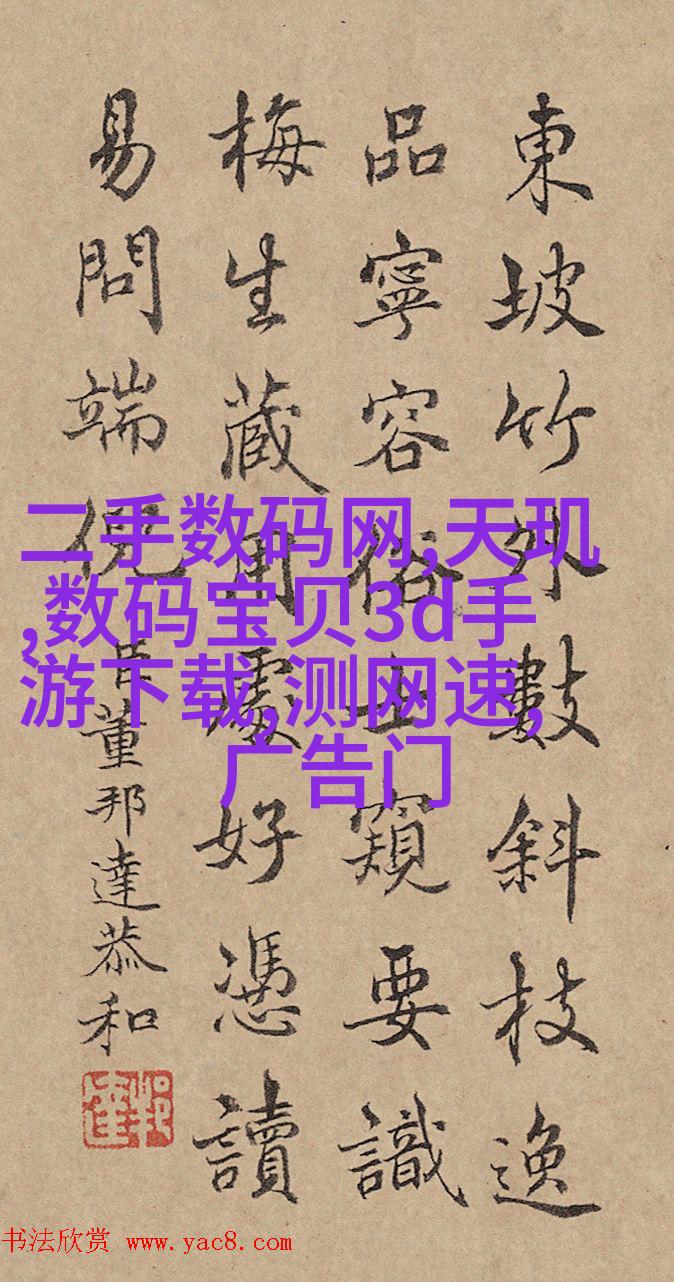 東坡竹外數斜枝逸
品寧容俗士窺要識
梅生藏用處好憑讀
易問端倪
臣董邦達恭和
二手数码网,天玑
,数码宝贝3d手
游下载,测网速,
广告门
书法欣赏 www.yac8.com